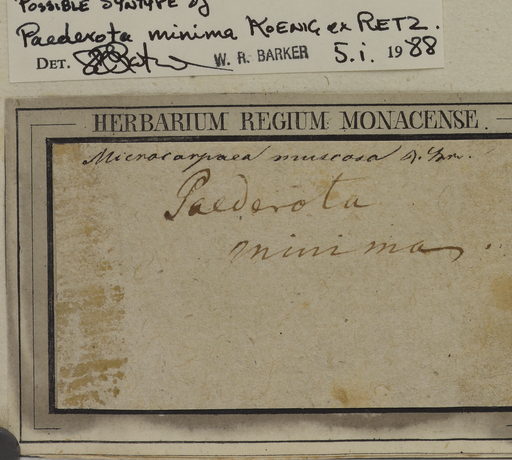 POSSIBLE SYNTYPE of
Paederota minima KOENIG ex RETZ.
DET. W. R. BARKER 5. i. 1988
HERBARIUM REGIUM MONACENSE.
Microcarpaea muscosa R. Br.
Paederota
minima.